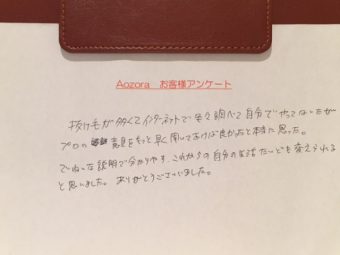 Aozora お客様アンケート
抜け毛が多くてインターネットで色々調べて自分でやってはいたが
プロの意見をもっと早く聞いておけば良かったと本当に思った。
ていねいな説明で分かりやすく、これからの自分の生活たいども変えられる
と思いました。ありがとうございました。